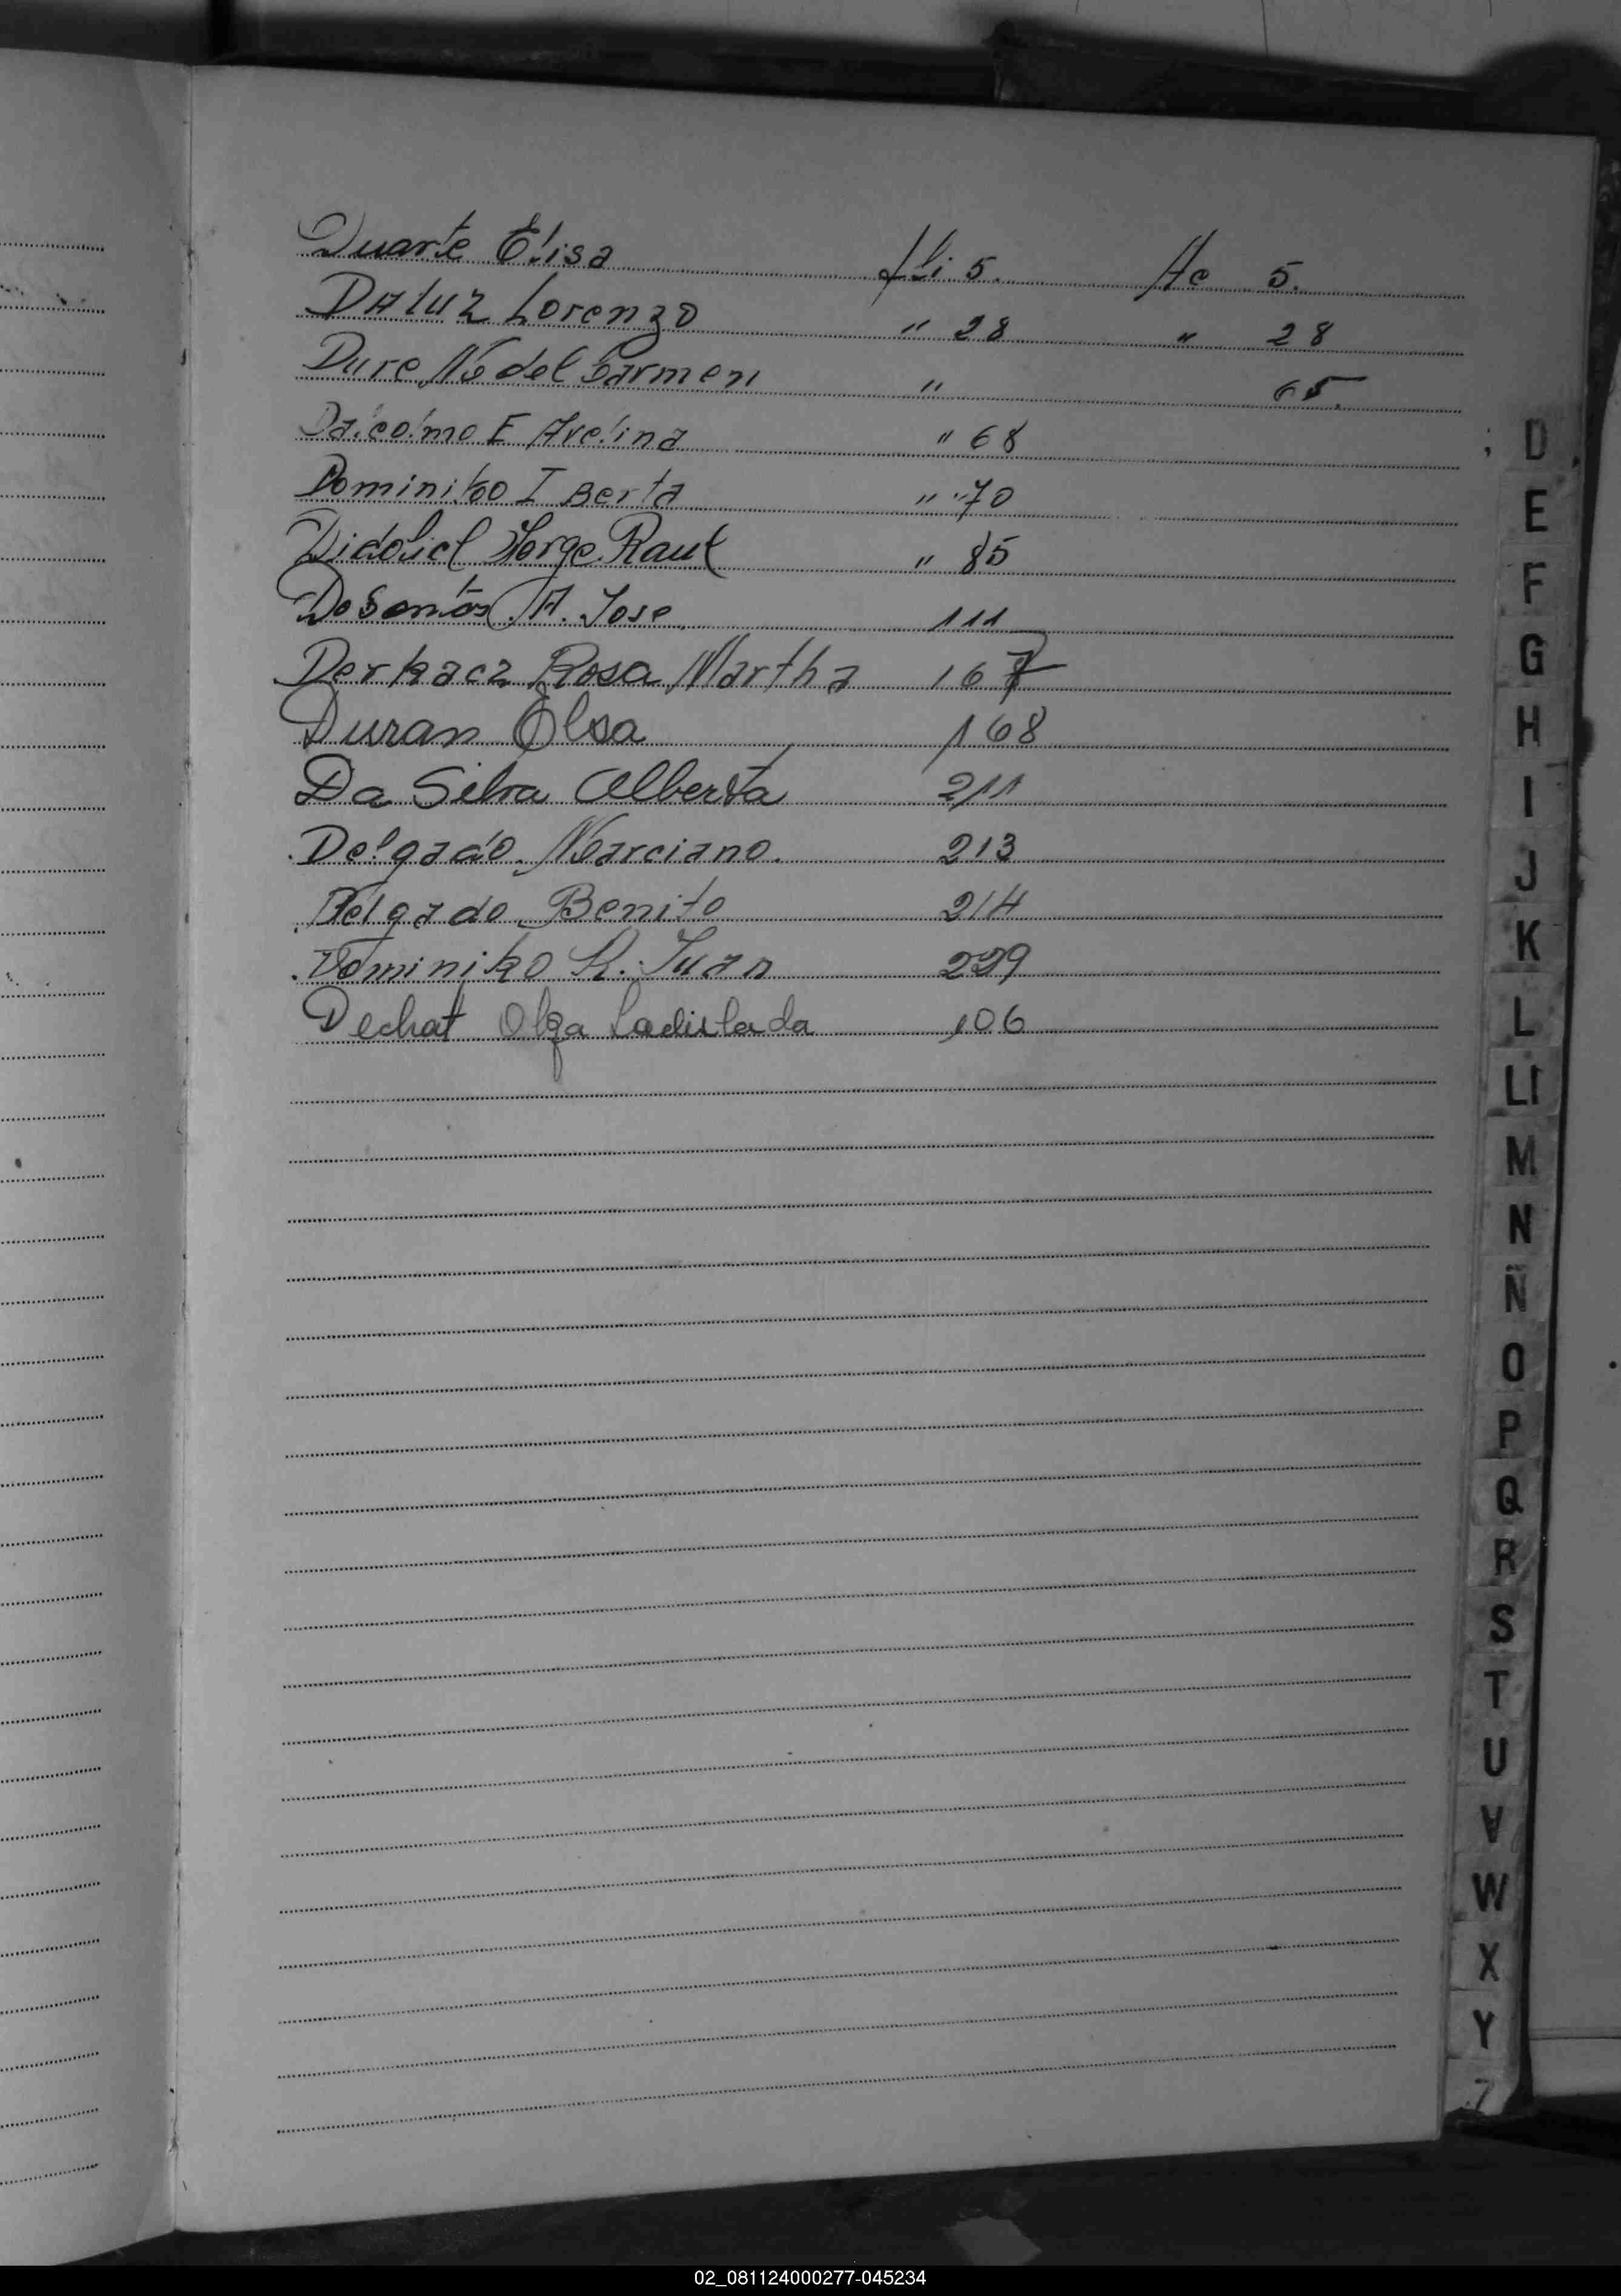 Duarte Elisa fli 5. Ac 5.
DAluz Lorenzo " 28 " 28
Dure M del Carmen " 65.
Dacómo E Avelina " 68
Dominiko I Berta " " 70
Jorge Raul " 85
DoSantos A. Jose 111
Derkacz Rosa Martha 167
Duran Elsa 168
Da Silva Alberta 211
Delgado Marciano. 213
Delgado Benito 214
Dominiko R. Juan 229
Dechat Olga Ladislada 106
D
E
F
G
H
I
J
K
L
Ll
M
N
Ñ
O
P
Q
R
S
T
U
V
W
X
Y
Z
02_081124000277-045234